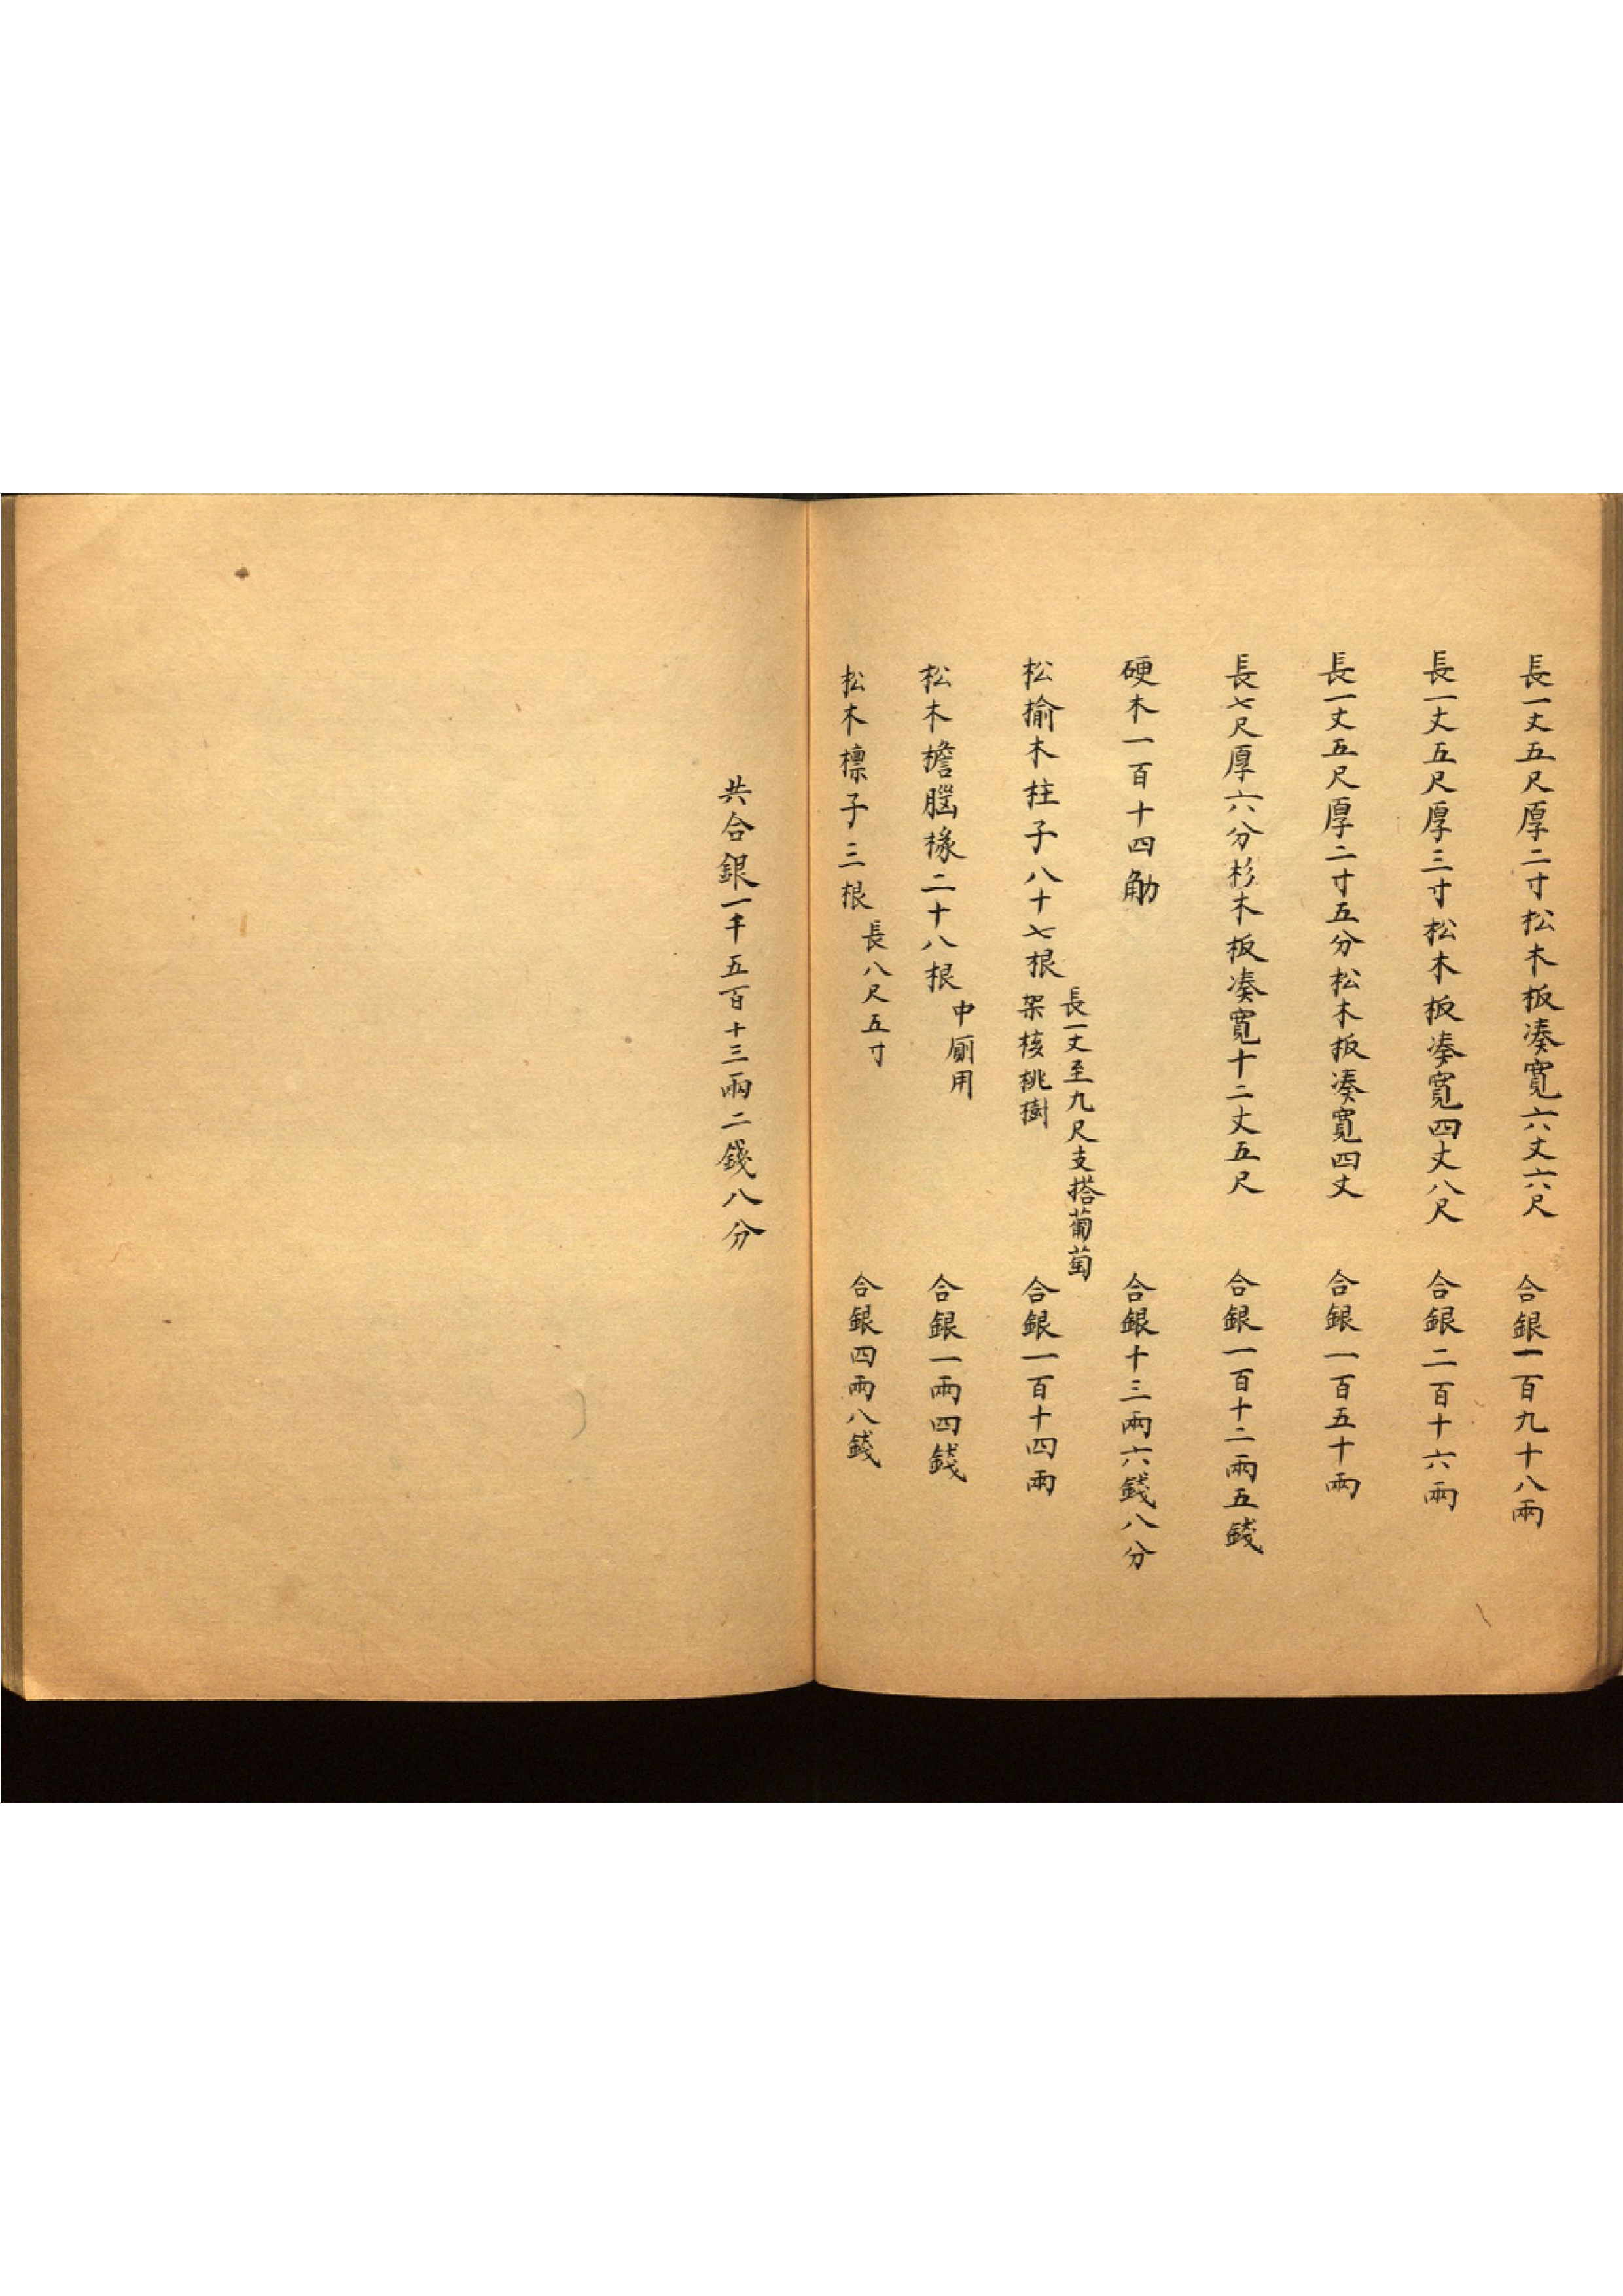 長一丈五尺厚二寸松木板湊寬六丈六尺 合銀一百九十八兩
長一丈五尺厚三寸松木板湊寬四丈八尺 合銀二百十六兩
長一丈五尺厚二寸五分松木板湊寬四丈 合銀一百五十兩
長七尺厚六分杉木板湊寬十二丈五尺 合銀一百十二兩五錢
硬木一百十四觔 合銀十三兩六錢八分
松榆木柱子八十七根 長一丈至九尺支搭葡萄
架核桃樹 合銀一百十四兩
松木檐腦椽二十八根 中厠用 合銀一兩四錢
松木檩子三根 長八尺五寸 合銀四兩八錢
共合銀一千五百十三兩二錢八分